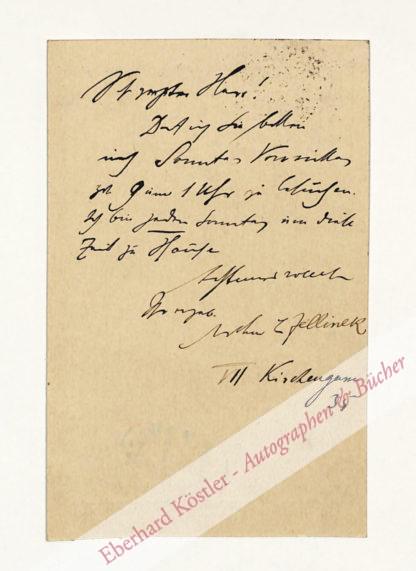 Sehr geehrter Herr!
Darf ich Sie bitten
mich Sonntag Vormittag
9 um 1 Uhr zu besuchen.
Ich bin jeden Sonntag um diese
Zeit zu Hause
Hochachtungsvoll
Ihr ergeb.
Arthur L Jellinek
VII Kirchengasse
Eberhard Köstler - Autographen & Bücher